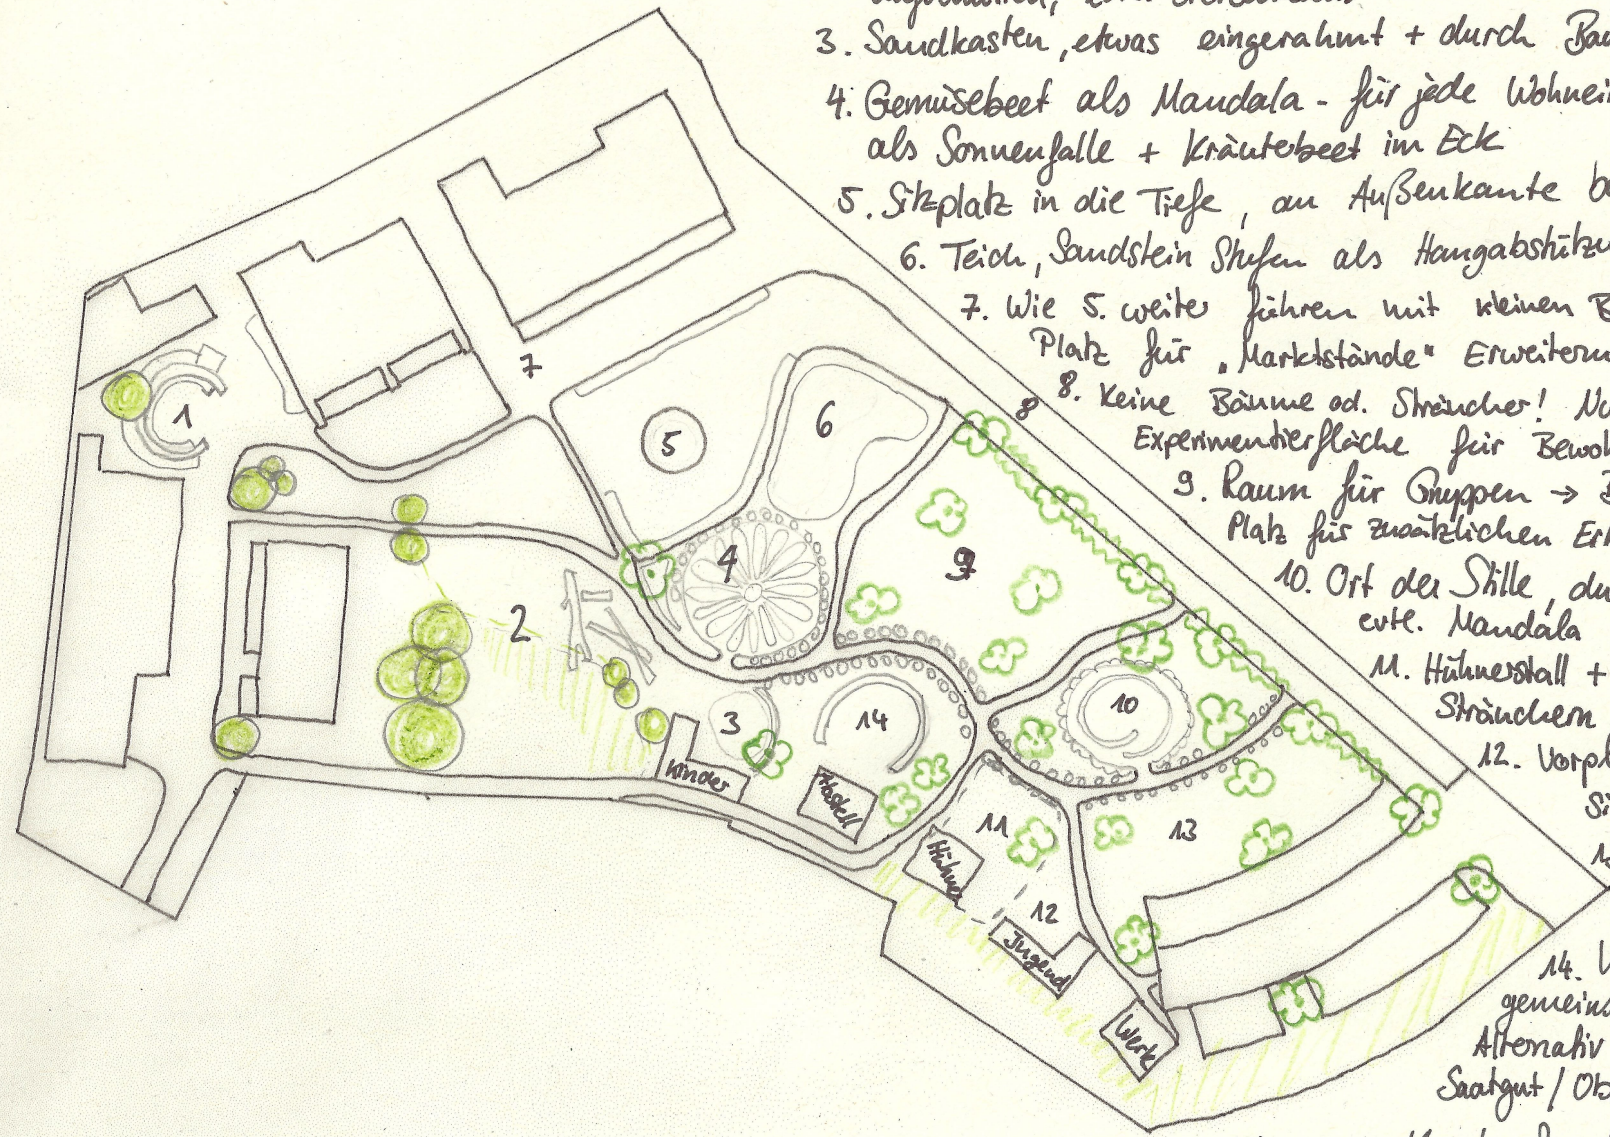 3. Sandkasten, etwas eingerahmt + durch
4. Gemüsebeet als Mandala - für jede
als Sonnenfalle + Kräuterbeet im Eck
5. Sitzplatz in die Tiefe, an Außenkante
6. Teich, Sandstein Stufen als
7. Wie 5. weiter führen mit kleinen
Platz für „Marktstände"
8. Keine Bäume od. Sträucher!
Experimentierfläche für
9. Raum für Gruppen →
Platz für zusätzlichen
10. Ort der Stille,
evtl. Mandala
11. Hühnerstall +
Sträuchern
12.
14.
Alternativ
Saatgut /
7
1
5
6
8
4
9
2
3
14
10
Kinder
Hostell
11
13
Hühner
12
Jugend
Werk